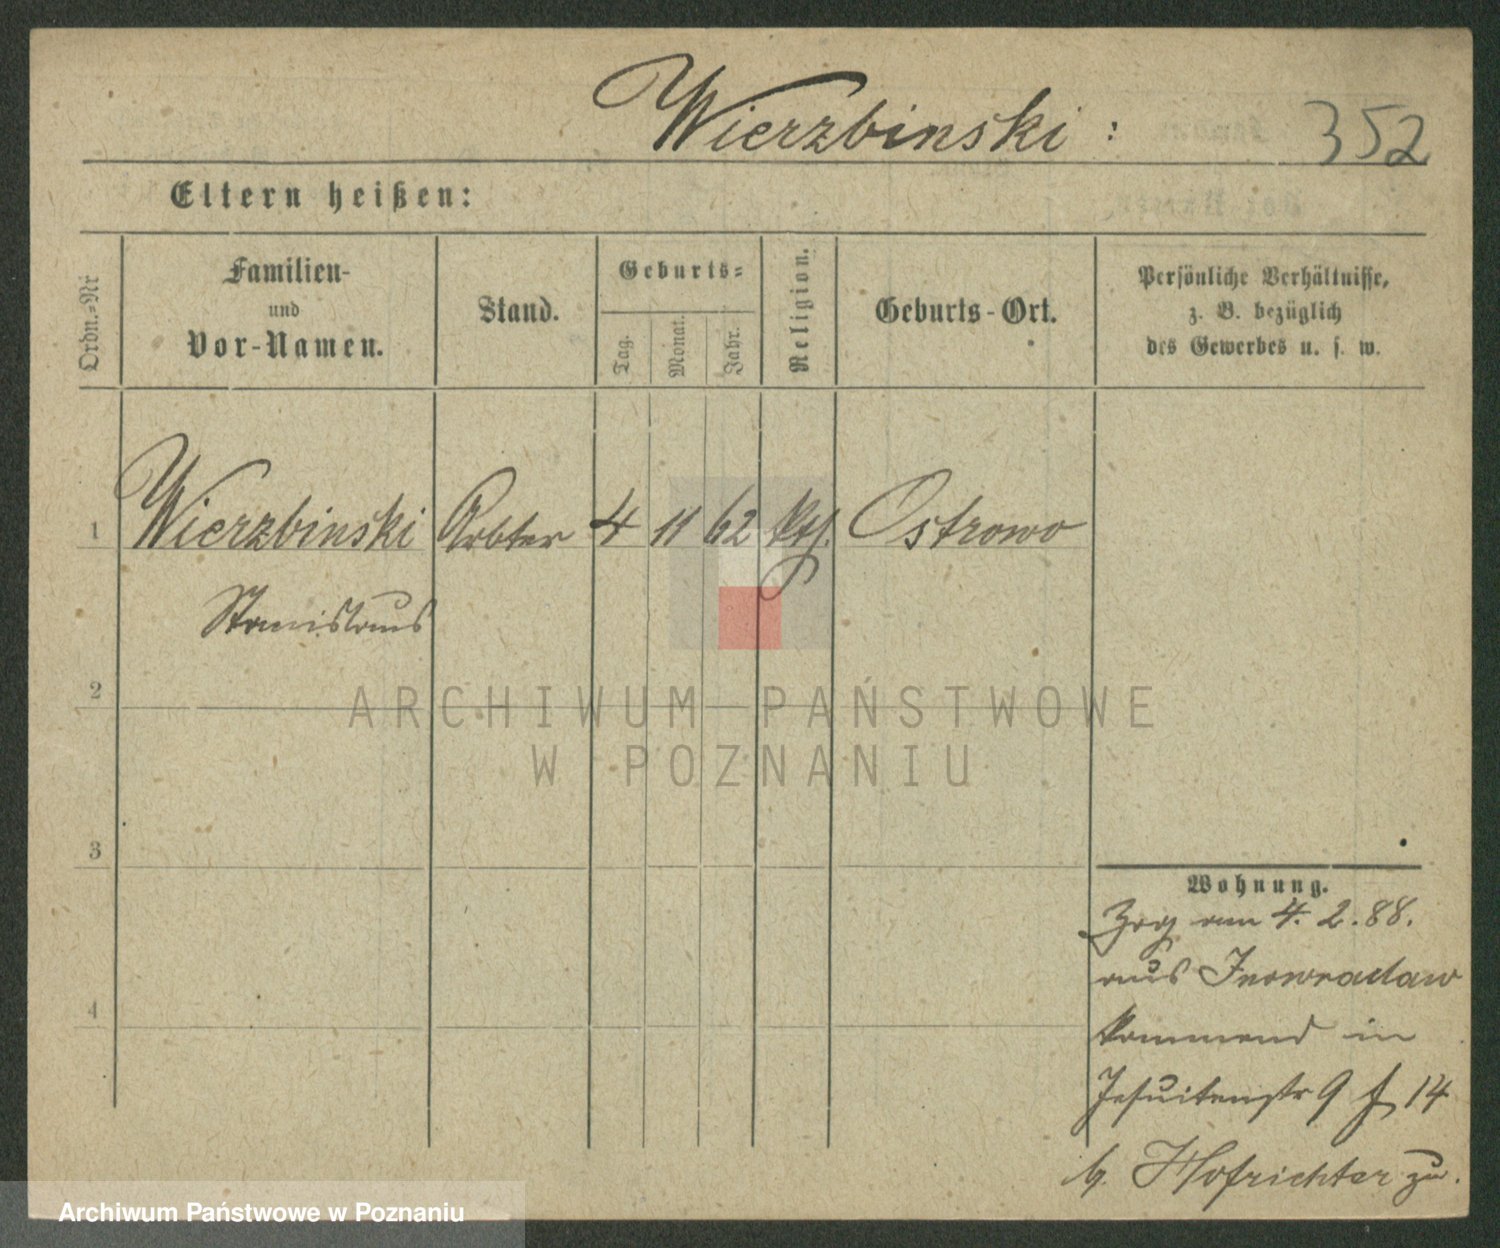 Wierzbinski :
352
Eltern heißen:
Ordn.-Nr
Familien-
und
Vor-Namen.
Stand.
Geburts-
Tag.
Monat.
Jahr.
Religion.
Geburts-Ort.
Persönliche Verhältnisse,
z. B. bezüglich
des Gewerbes u. s. w.
1 Wierzbinski Arbter 4 11 62 kth. Ostrowo
Stanislaus
2
ARCHIWUM PAŃSTWOWE
W POZNANIU
3
Wohnung.
Zog am 4. 2. 88.
aus Inowradaw
4
kommend in
Jesuitenstr 9 14
b. Hofrichter zu.
Archiwum Państwowe w Poznaniu